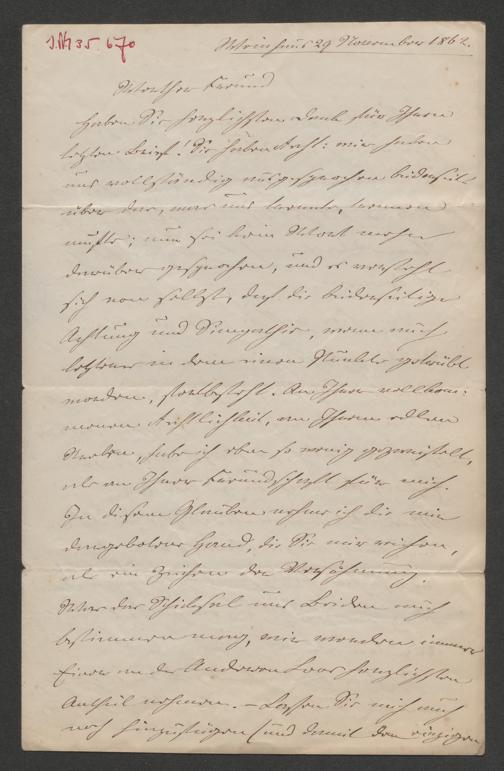 I.N. 35.670
29 November 1862.
Werther Freund
Haben Sie herzlichsten Dank für Ihren
letzten Brief! Sie haben Recht: wir haben
uns vollständig ausgesprochen beiderseits
über das, was uns trennte, trennen
mußte; nun sei kein Wort mehr
darüber gesprochen, und es versteht
sich von selbst, daß die beiderseitige
Achtung und Simpathie, wenn auch
letztere in dem einen Punkte getrübt
worden, fortbesteht. An Ihrer vollkom:
menen Rechtlichkeit, an Ihrem edlen
Streben, habe ich eben so wenig gezweifelt,
als an Ihrer Freundschaft für mich.
In diesem Glauben nehme ich die mir
dargebotene Hand, die Sie mir reichen,
als ein Zeichen der Versöhnung.
Was das Schicksal uns Beiden auch
bestimmen mag, wir werden immer
Einer an des Anderen Loos herzlichsten
Antheil nehmen. – Lassen Sie mich nur
noch hinzufügen (und damit den einzigen